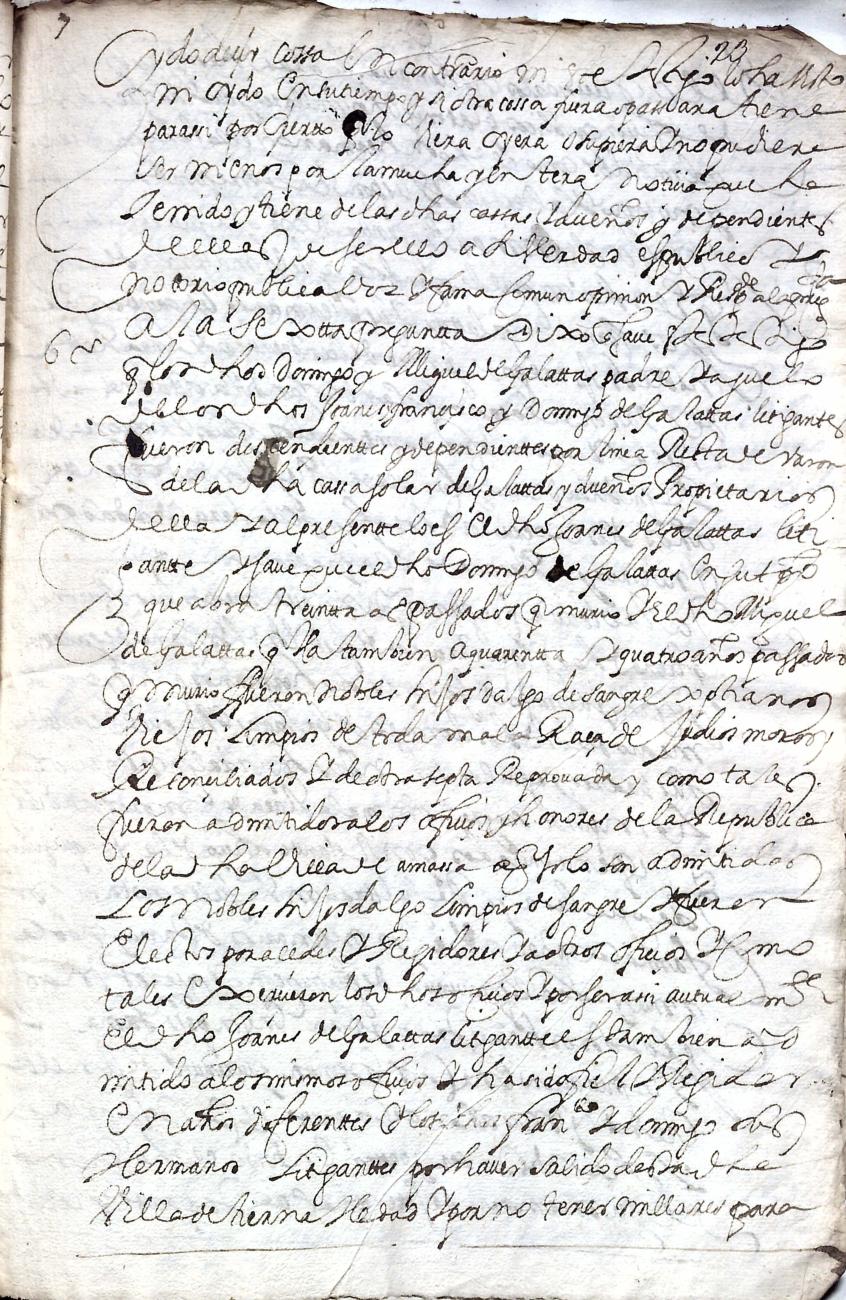 23
oydo deçir cossa En contrario ni este tgo lo ha visto
ni oydo En su tiempo y si otra cossa fuera o passara tiene
parassi por çierto q lo viera oyera o supiera Y no pudiera
ser menos por la mucha y entera notiçia que ha
tenido y tiene de las dhas cassas Y dueños y dependientes
de ellas Y de ser ello assi Verdad es publico Y
notorio publica voz Y fama Comun opinion Y Resde a la pregta
6 A la Sextta preguntta Dixo q save este tgo
q los dhos Domingo y Miguel de Galattas padre Y aguelo
de los dhos Joanes françisco y Domingo de Galattas litigantes
fueron desçendienttes y dependienttes por linea Retta de varon
de la dha cassa solar de Galattas y dueños Propietarios
de ella Y al presentte lo es El dho Joanes de Galattas liti
gantte Y save que el dho Domingo de Galattas En su tpo
que abra treintta as passados q murio Y El dho Miguel
de Galattas q ha tambien quarentta Y quatro años passados
q murio fueron nobles hijos dalgo de sangre xptianos
viejos limpios de toda mala Raça de judios moros
Reconçiliados Y de otra septa Reprovada y como tales
fueron admitidos a los ofiçios y honores de la Republica
de la dha Villa de amassa a q solo son admitidos
Los nobles hijos dalgo limpios de sangre Y fueron
Electos por alcaldes Y Regidores Y a otros ofiçios Y Como
tales Exerçieron los dhos ofiçios Y por ser assi autualmte
El dho Joanes de Galattas litigantte es tambien ad
mitido a los mismos ofiçios Y ha sido fiel Regidor
En años diferenttes Y los dhos Franco Y domingo sus
Hermanos Litiganttes por haver salido desta dha
Villa de tierna Hedad Y por no tener millares para